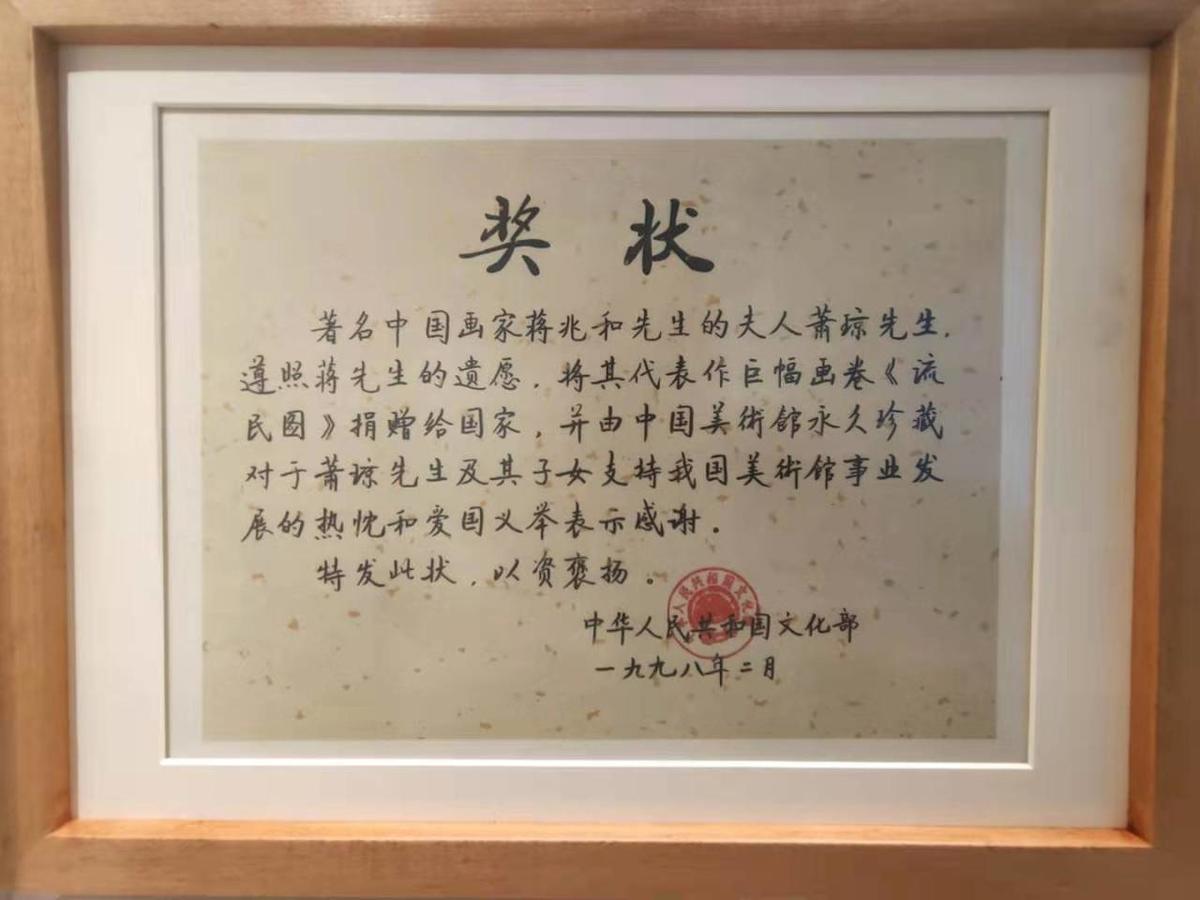 奖状
著名中国画家蒋兆和先生的夫人萧琼先生,
遵照蒋先生的遗愿,将其代表作巨幅画卷《流
民图》捐赠给国家,并由中国美術馆永久珍藏
对于萧琼先生及其子女支持我国美術馆事业发
展的热忱和爱国义举表示感谢。
特发此状,以资褒扬。
中华人民共和国文化部
一九九八年二月